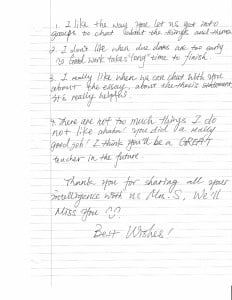 1. I like the way you let us get into
groups to chat about the simple and
2. I don't like when due dates are too early
Good work takes "long" time to finish.
3. I really like when we can chat with you
about the essay, about the thesis statement,
it's really helpful.
4. There are not too much things I do
not like ahaha! you did a really
good job! I think you'll be a GREAT
teacher in the future
Thank you for sharing all your
intelligence with us Mrs. S, We'll
Miss You
Best Wishes!